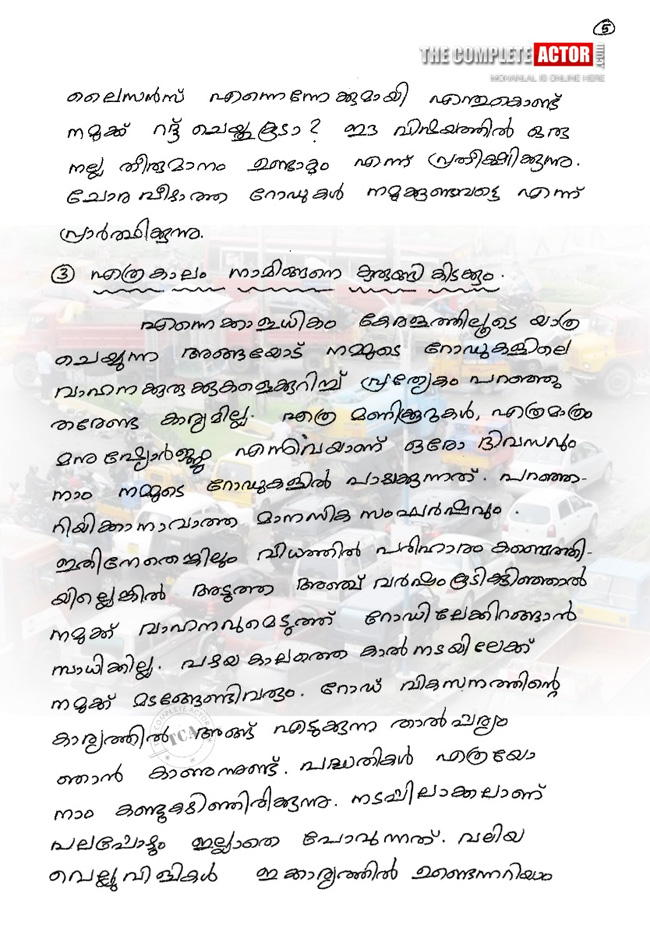 5
THE COMPLETE ACTOR .COM
MOHANLAL IS ONLINE HERE
ലൈസൻസ് എന്നെന്നേക്കുമായി എന്തുകൊണ്ട്
നമുക്ക് റദ്ദ് ചെയ്തുകൂടാ? ഈ വിഷയത്തിൽ ഒരു
നല്ല തീരുമാനം ഉണ്ടാകും എന്ന് പ്രതീക്ഷിക്കുന്നു.
ചോര വീഴാത്ത റോഡുകൾ നമുക്കുണ്ടാവട്ടെ എന്ന്
പ്രാർത്ഥിക്കുന്നു.
③ എത്രകാലം നാമിങ്ങനെ കുരുങ്ങി കിടക്കും.
എന്നെക്കാളധികം കേരളത്തിലൂടെ യാത്ര
ചെയ്യുന്ന അങ്ങയോട് നമ്മുടെ റോഡുകളിലെ
വാഹനക്കുരുക്കുകളെക്കുറിച്ച് പ്രത്യേകം പറഞ്ഞു
തരേണ്ട കാര്യമില്ല. എത്ര മണിക്കൂറുകൾ, എത്രമാത്രം
മനുഷ്യോർജ്ജം എന്നിവയാണ് ഓരോ ദിവസവും
നാം നമ്മുടെ റോഡുകളിൽ പാഴാക്കുന്നത്. പറഞ്ഞ-
റിയിക്കാനാവാത്ത മാനസിക സംഘർഷവും .
ഇതിനേതെങ്കിലും വിധത്തിൽ പരിഹാരം കണ്ടെത്തി-
യില്ലെങ്കിൽ അടുത്ത അഞ്ച് വർഷം കൂടി കഴിഞ്ഞാൽ
നമുക്ക് വാഹനവുമെടുത്ത് റോഡിലേക്കിറങ്ങാൻ
സാധിക്കില്ല. പഴയ കാലത്തെ കാൽനടയിലേക്ക്
നമുക്ക് മടങ്ങേണ്ടിവരും. റോഡ് വികസനത്തിന്റെ
കാര്യത്തിൽ അങ്ങ് എടുക്കുന്ന താൽപര്യം
ഞാൻ കാണുന്നുണ്ട്. പദ്ധതികൾ എത്രയോ
നാം കണ്ടുകഴിഞ്ഞിരിക്കുന്നു. നടപ്പിലാക്കലാണ്
പലപ്പോഴും ഇല്ലാതെ പോവുന്നത്. വലിയ
വെല്ലുവിളികൾ ഇക്കാര്യത്തിൽ ഉണ്ടെന്നറിയാം
TCA